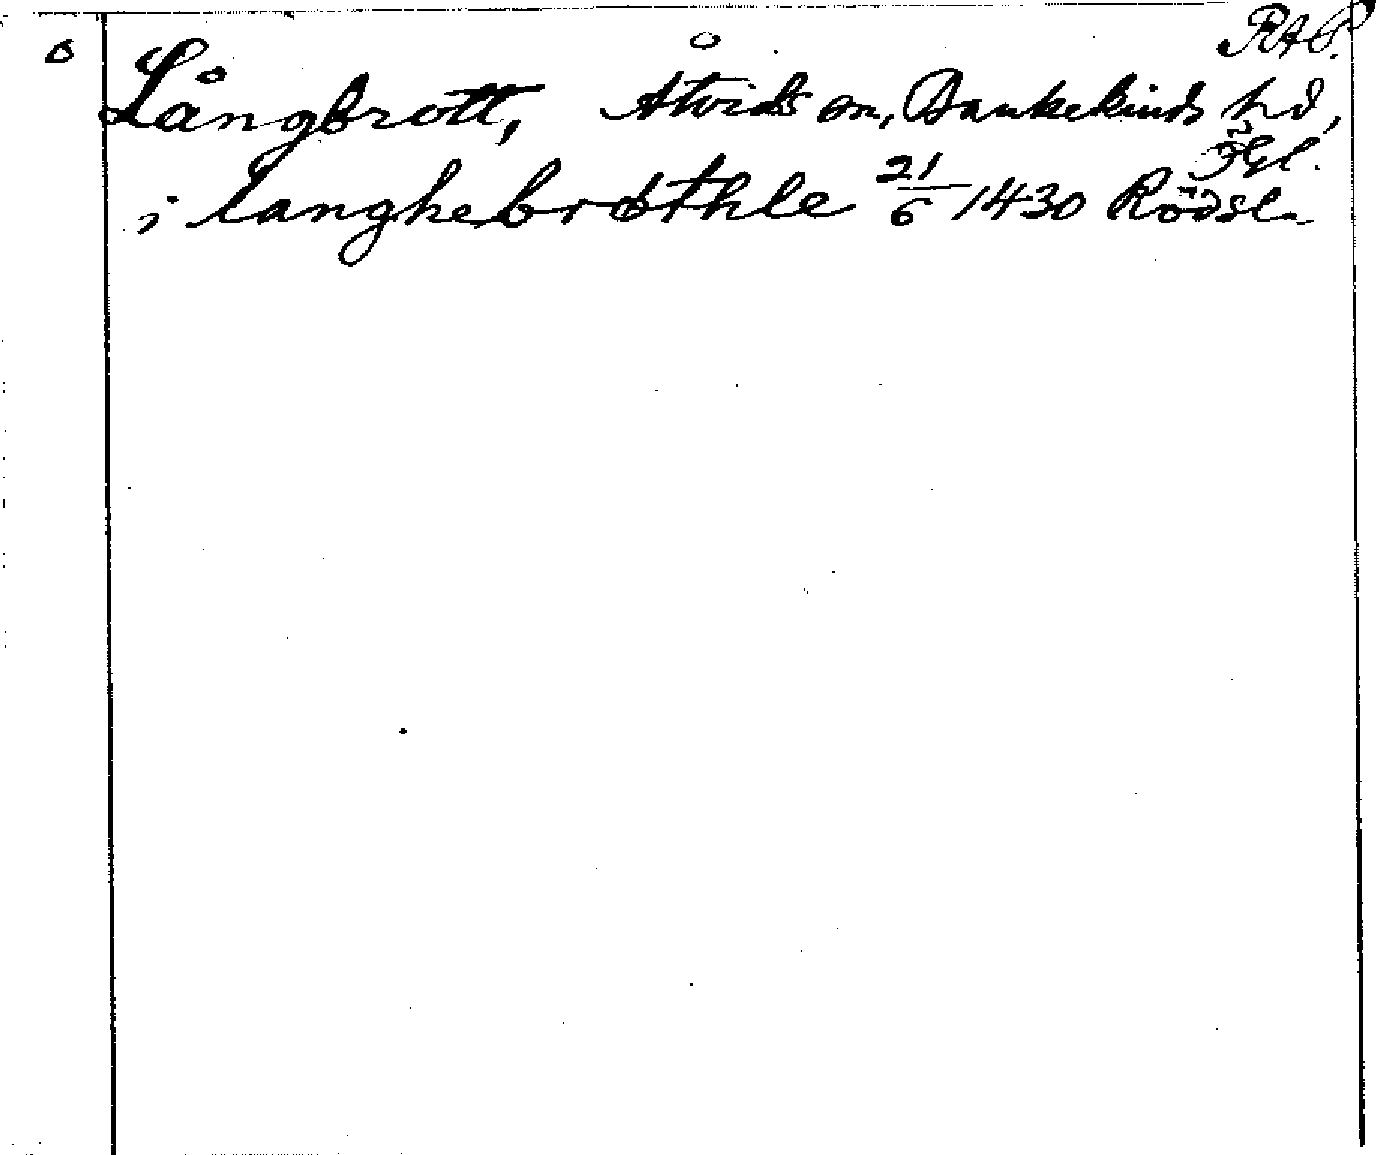 RAP.
Långbrott, Åtvids sn, Bankekinds hd,
Ögl.
i langhebrøthle 21/6 1430 Rödsl.